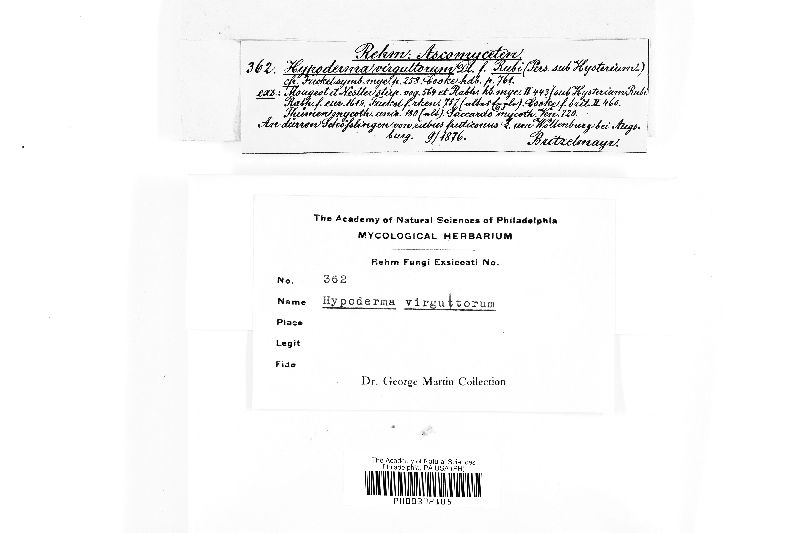 Rehm: Ascomyceten.
362. Hypoderma virgultorum DC. f. Rubi (Pers. sub Hysterium.)
cfr. Fuckel symb. myc. p. 253. Cooke hdb. p. 761.
exs: Mougeot et Nestler stirp. vog. 564 et Rabh. hb. myc. II 443 (sub Hysterium Rubi
Rabh. f. eur. Fuckel f. rhen. 757 Cooke f. brit. II 460.
Thümen mycoth. univ. 180 Saccardo mycoth. Ven. 120.
An dürren Schösslingen von rubus fruticosus L. um Wöllenburg bei Augs-
burg. 9/1876. Britzelmayr.
The Academy of Natural Sciences of Philadelphia
MYCOLOGICAL HERBARIUM
Rehm Fungi Exsiccati No.
No. 362
Name Hypoderma virgultorum
Place
Legit
Fide
Dr. George Martin Collection
The Academy of Natural Sciences
Philadelphia, PA USA (PH)